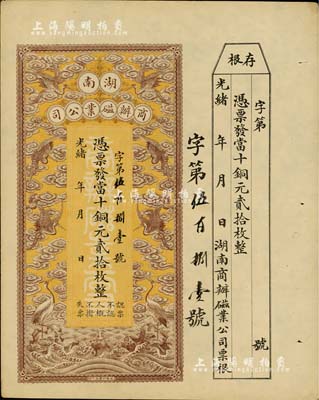 上海陽明拍賣
湖南
商辦磁業公司
字第伍百捌壹號
憑票發當十銅元貳拾枚整
光緒 年 月 日
認票不認人概不掛失票
字第伍百捌壹號
存根
字第 號
憑票發當十銅元貳拾枚整
光緒 年 月 日湖南商辦磁業公司票根